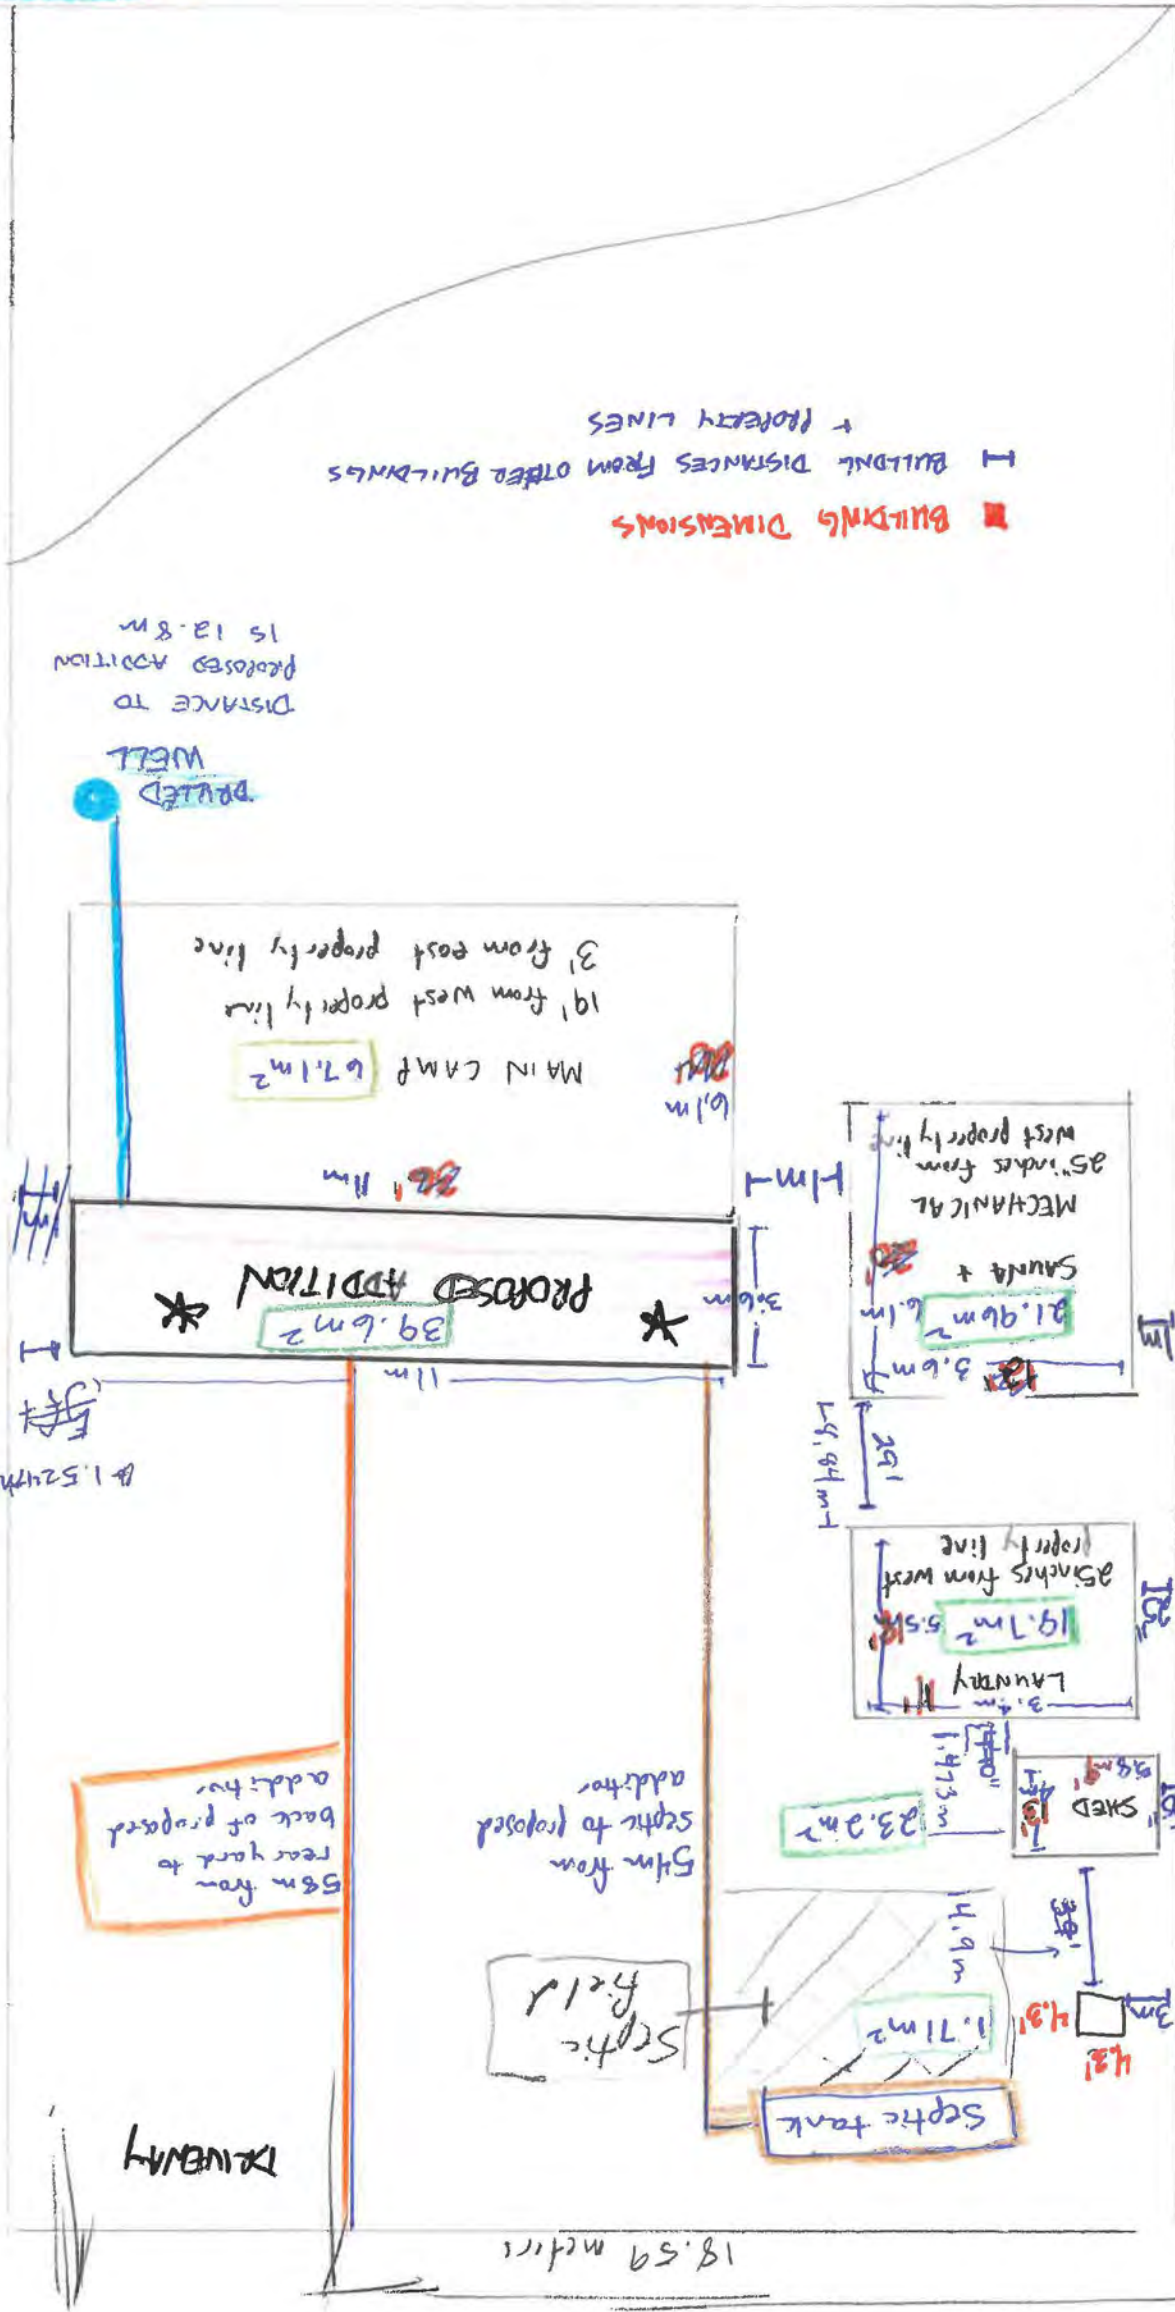 18.59 meters
DRIVEWAY
Septic tank
4.3'
4.3'
3m
1.71m²
Septic
field
14.9m
54m from
septic to proposed
addition
58m from
rear yard to
back of proposed
addition
SHED
13'
4m
5.8m
23.2m²
1.473m
3.4m
11'
LAUNDRY
19.7m²
5.5m
25inches from west
property line
29'
8.84m
1.524m
3.6m
12'
1m
21.96m²
6.1m
20'
SAUNA +
MECHANICAL
25"inches from
west property line
11m
39.6m²
3.6m
PROPOSED ADDITION
1m
1m
36' 11m
6.1m
MAIN CAMP 67.1m²
19' from west property line
3' from east property line
DRILLED
WELL
DISTANCE TO
PROPOSED ADDITION
IS 12.8m
BUILDING DIMENSIONS
BUILDING DISTANCES FROM OTHER BUILDINGS
+ PROPERTY LINES